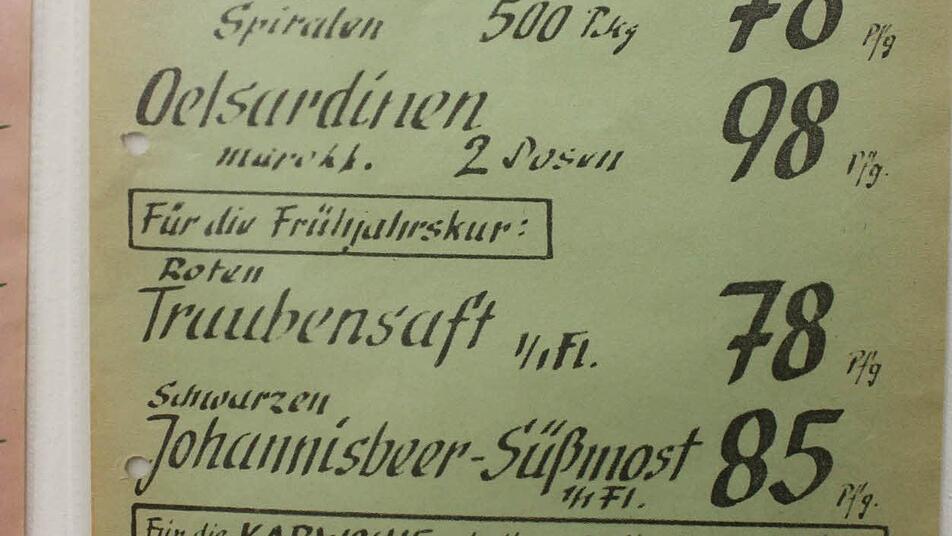 Spiralen 500 Pckg 78 Pfg
Oelsardinen 98
marokk. 2 Dosen Pfg.
Für die Frühjahrskur:
Roten
Traubensaft 1/1 Fl. 78 Pfg
Schwarzen
Johannisbeer-Süßmost 85
1/1 Fl. Pfg.
Für die KARWOCHE